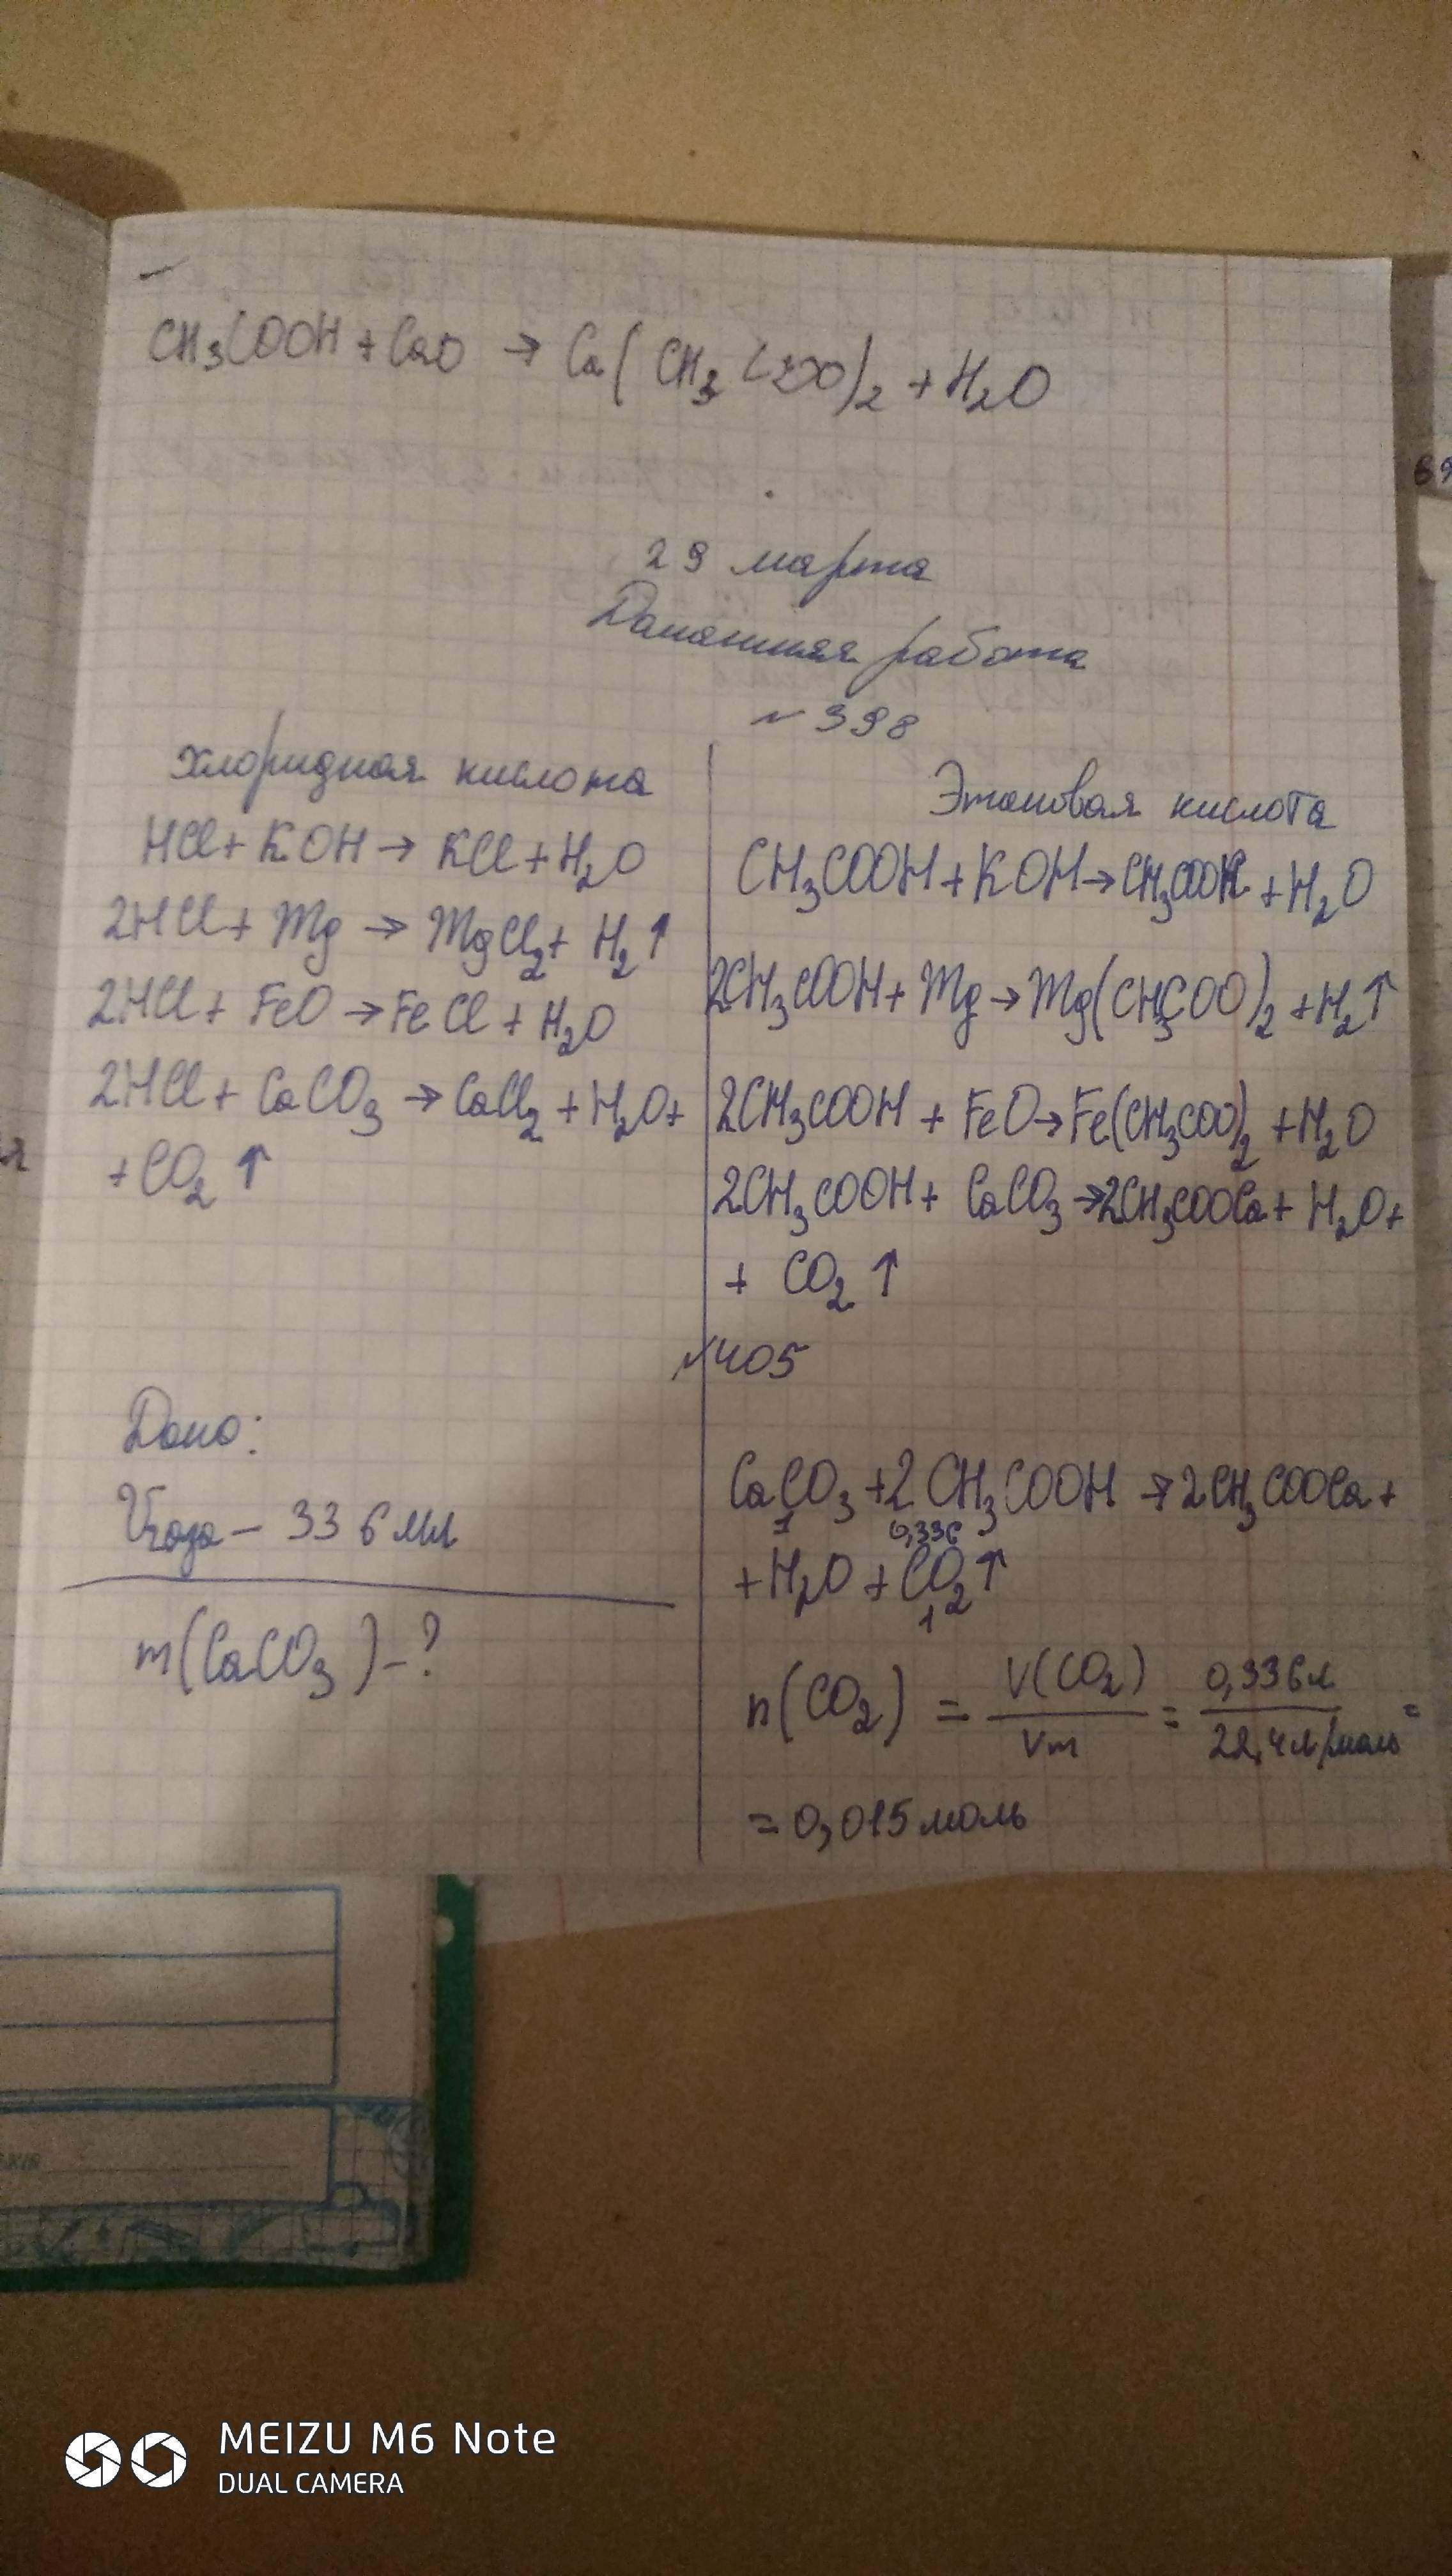 CH₃COOH + CaO → Ca(CH₃COO)₂ + H₂O
29 марта
Домашняя работа
№398
Хлоридная кислота
HCl + KOH → KCl + H₂O
2HCl + Mg → MgCl₂ + H₂↑
2HCl + FeO → FeCl + H₂O
2HCl + CaCO₃ → CaCl₂ + H₂O +
+ CO₂↑
Этановая кислота
CH₃COOH + KOH → CH₃COOK + H₂O
2CH₃COOH + Mg → Mg(CH₃COO)₂ + H₂↑
2CH₃COOH + FeO → Fe(CH₃COO)₂ + H₂O
2CH₃COOH + CaCO₃ → 2CH₃COOCa + H₂O +
+ CO₂↑
№405
Дано:
Vгаза – 336 мл
m(CaCO₃) – ?
CaCO₃ + 2CH₃COOH → 2CH₃COOCa +
1 0,336
+ H₂O + CO₂↑
1
n(CO₂) = V(CO₂)/Vm = 0,336л/22,4л/моль =
= 0,015 моль
69
MEIZU M6 Note
DUAL CAMERA